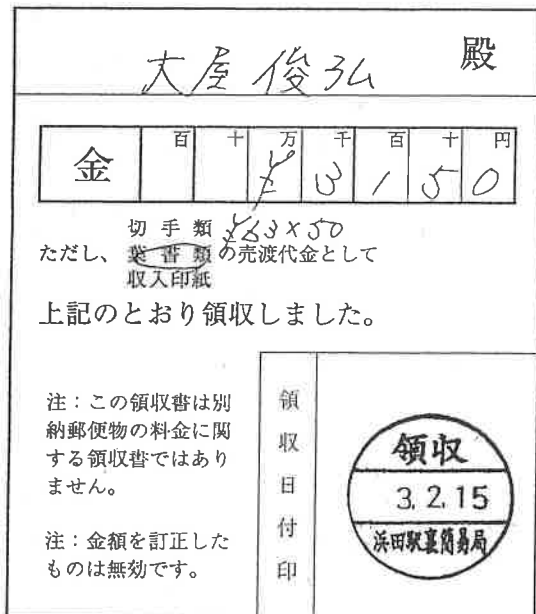 大屋俊弘 殿
金 百 十 万 千 百 十 円
¥ 3 1 5 0
切手類 ¥63×50
ただし、葉書類の売渡代金として
収入印紙
上記のとおり領収しました。
注：この領収書は別
納郵便物の料金に関
する領収書ではあり
ません。
注：金額を訂正した
ものは無効です。
領収日付印
領収
3.2.15
浜田駅裏簡易局